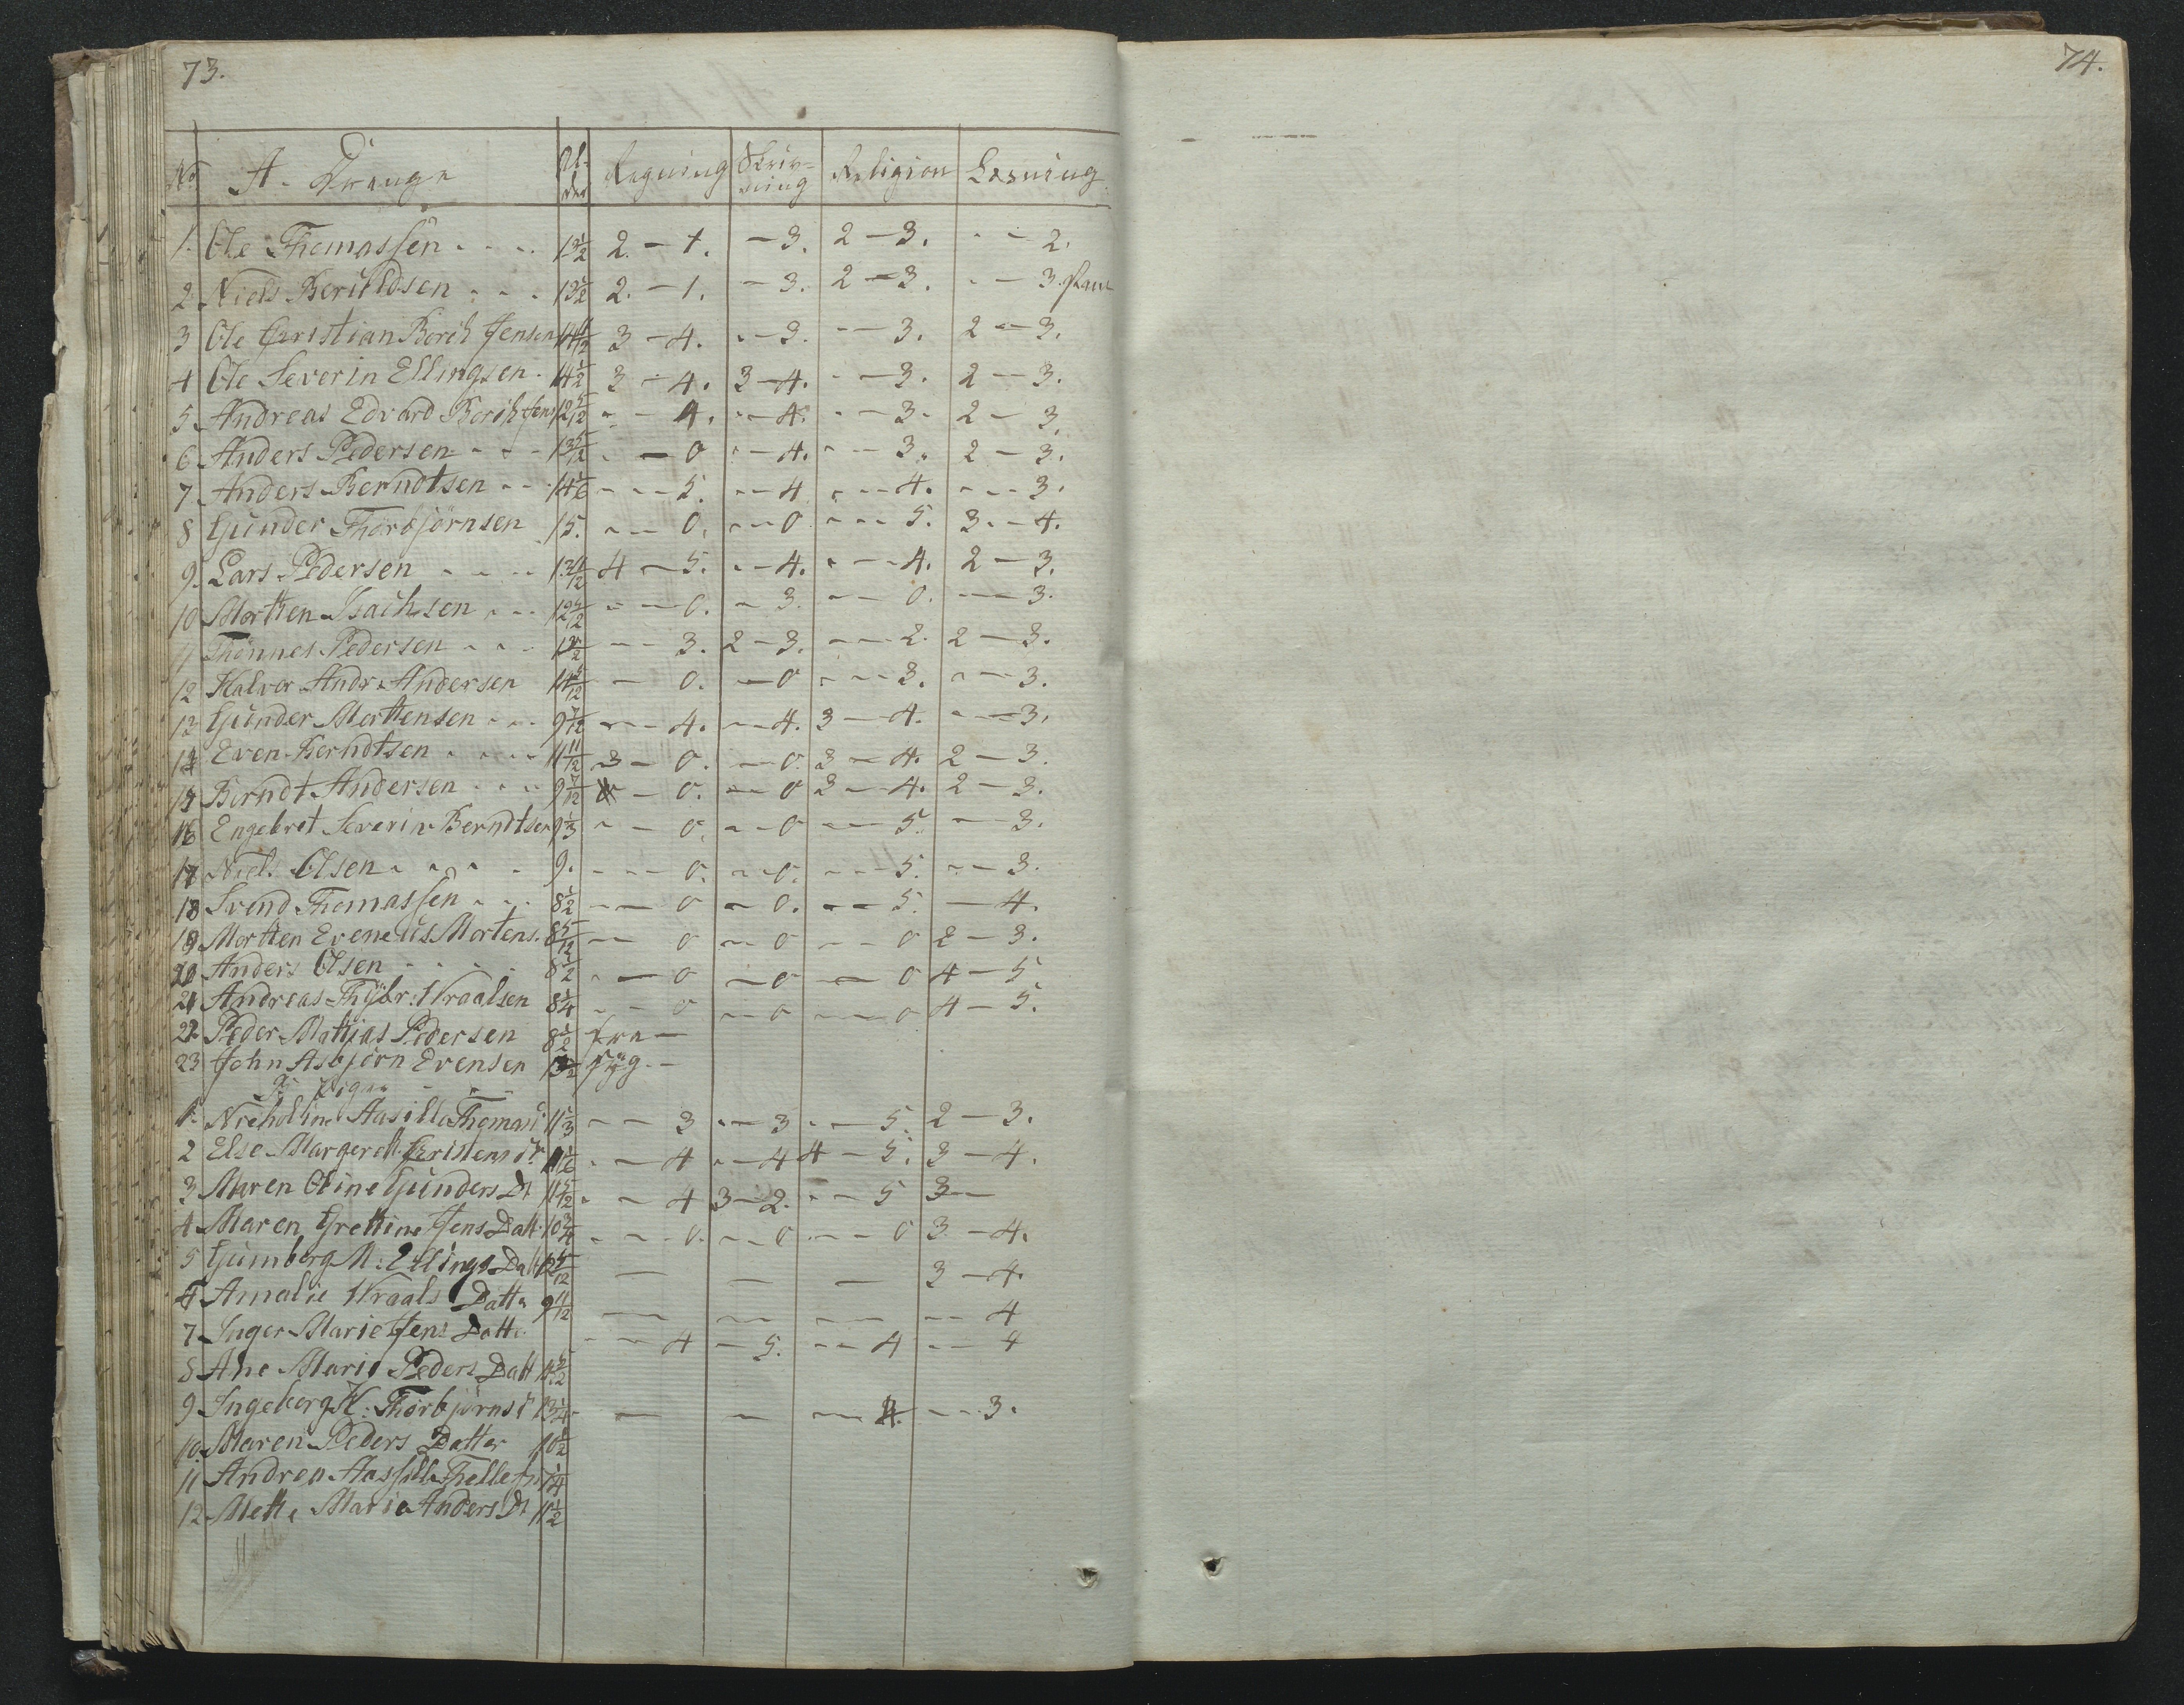 73.
74.
No A. Drenge Al-der Regning Skriv-ning Religion Læsning
1. Ole Thomassen 13 1/2 2 - 1. - 3. 2 - 3. - - 2.
2. Niels Beruldsen 13 1/2 2. - 1. - 3. 2 - 3. - - 3.
3 Ole Christian Borch Jensen 14 11/12 3 - 4. - - 3. - - 3. 2 - 3.
4 Ole Severin Ellingsen 14 1/2 3 - 4. 3 - 4. - - 3. 2 - 3.
5 Andreas Edvard Borch Jens 12 5/12 - - 4. - - 4. - - 3. 2 - 3.
6 Anders Pedersen 13 5/12 - - 0 - - 4. - - 3. 2 - 3.
7. Anders Berndtsen 14 1/6 - - - 5. - - 4 - - - 4. - - - 3.
8 Gunder Thorbjørnsen 15. - - - 0. - - 0 - - - 5. 3. - 4.
9. Lars Pedersen 13 11/12 4 - 5. - - 4. - - - 4. 2 - 3.
10 Morthen Isachsen - - - 0. - 3. - - 0. - - 3.
11 Thønnes Pedersen - - 3. 2 - 3. - - - 2. 2 - 3.
12 Halvor Andr. Andersen - 0. - 0 - - - 3. - - - 3.
13 Gunder Morthensen 9 7/12 - - - 4. - - 4. 3 - 4. - - - 3.
14 Even Berndtsen 11 11/12 3 - 0. - - 0. 3 - 4. 2 - 3.
15 Berndt Andersen 9 7/12 - 0. - - 0 3 - 4. 2 - 3.
16 Engebret Severin Berndtsen 9 1/3 - - 0. - - 0 - - - 5. - - 3.
17 Niels Olsen 9. - - - 0. - - 0. - - - 5. - - 3.
18 Svend Thomassen 8 1/2 - - 0 - 0. - - 5. - 4.
19 Morthen Eveneus Mortens. 8 5/12 - - 0 - - 0 - - 0 2 - 3.
20 Anders Olsen 8 1/2 - - 0 - 0 - 0 4 - 5
21 Andreas Thybr: Wraalsen 8 1/4 - - 0 - - 0 - - - 0 4 - 5.
22. Peder Mathias Pedersen 8 1/2
23 John Asbjørn Evensen syg. -
Piger
1. Aasille Thomasd. 11 1/3 - - 3 - - 3 - - 5. 2 - 3.
2 Else Margreth Christensd. - - 4 - - 4 4 - 5. 3 - 4.
3 Maren Oline Gunders Dt 11 5/12 - - 4 3 - 2. - - 5 3 -
4 Maren Grethine Jens Datt. 10 3/4 - - - 0. - - 0 - - 0 3 - 4.
5 Gumborg M: Ellings Datt - - - 3 - 4.
6 Amalie Wraals Datter 9 11/12 - - - - - 4
7 Inger Marie Jens Datter - - 4 - 5. - - 4 - - 4
8 Ane Marie Peders Datt
9 Ingeborg K: Thorbjørnsd. 13 1/4 - - - 4. - - 3.
10. Maren Peders Datter 10 1/2
11 Andrea Aassille Thellefs
12 Mette Marie Anders Dt 11 1/2